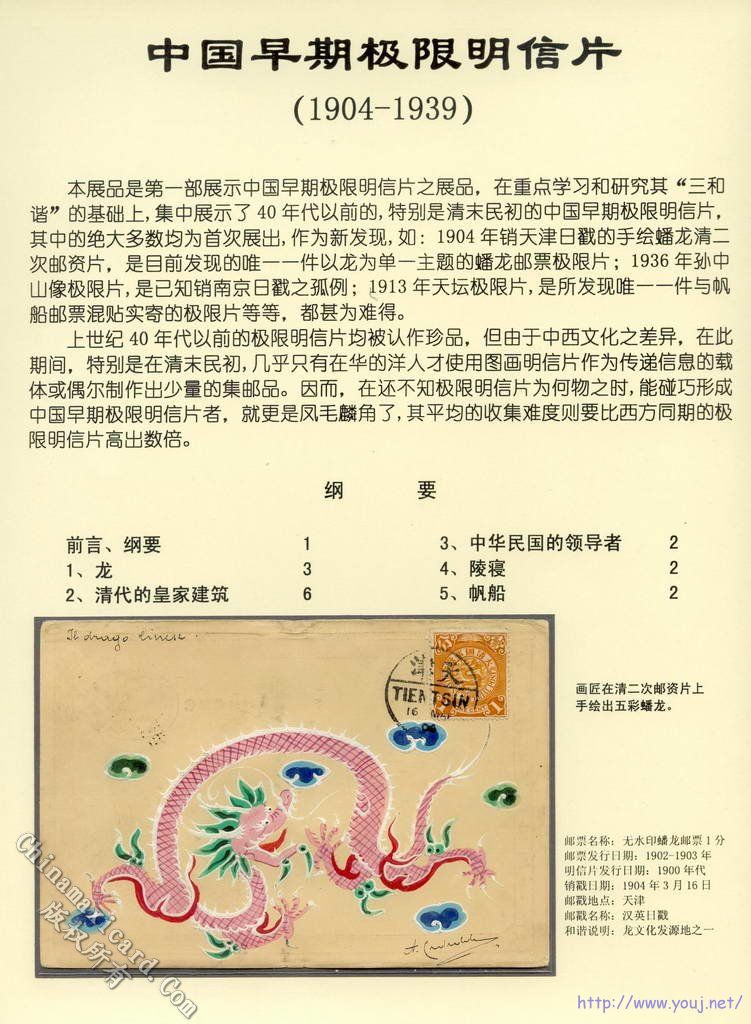 中国早期极限明信片
(1904-1939)
本展品是第一部展示中国早期极限明信片之展品，在重点学习和研究其“三和
谐”的基础上,集中展示了 40 年代以前的,特别是清末民初的中国早期极限明信片，
其中的绝大多数均为首次展出,作为新发现,如：1904 年销天津日戳的手绘蟠龙清二
次邮资片，是目前发现的唯一一件以龙为单一主题的蟠龙邮票极限片；1936 年孙中
山像极限片,是已知销南京日戳之孤例；1913 年天坛极限片,是所发现唯一一件与帆
船邮票混贴实寄的极限片等等，都甚为难得。
上世纪 40 年代以前的极限明信片均被认作珍品，但由于中西文化之差异，在此
期间，特别是在清末民初,几乎只有在华的洋人才使用图画明信片作为传递信息的载
体或偶尔制作出少量的集邮品。因而，在还不知极限明信片为何物之时,能碰巧形成
中国早期极限明信片者，就更是凤毛麟角了,其平均的收集难度则要比西方同期的极
限明信片高出数倍。
纲 要
前言、纲要 1
1、龙 3
2、清代的皇家建筑 6
3、中华民国的领导者 2
4、陵寝 2
5、帆船 2
Il drago cinese.
天
TIENTSIN
16
1
画匠在清二次邮资片上
手绘出五彩蟠龙。
邮票名称：无水印蟠龙邮票 1 分
邮票发行日期：1902-1903 年
明信片发行日期：1900 年代
销戳日期：1904 年 3 月 16 日
邮戳地点：天津
邮戳名称：汉英日戳
和谐说明：龙文化发源地之一
Chinamaxicard.Com
版权所有
http://www.youj.net/